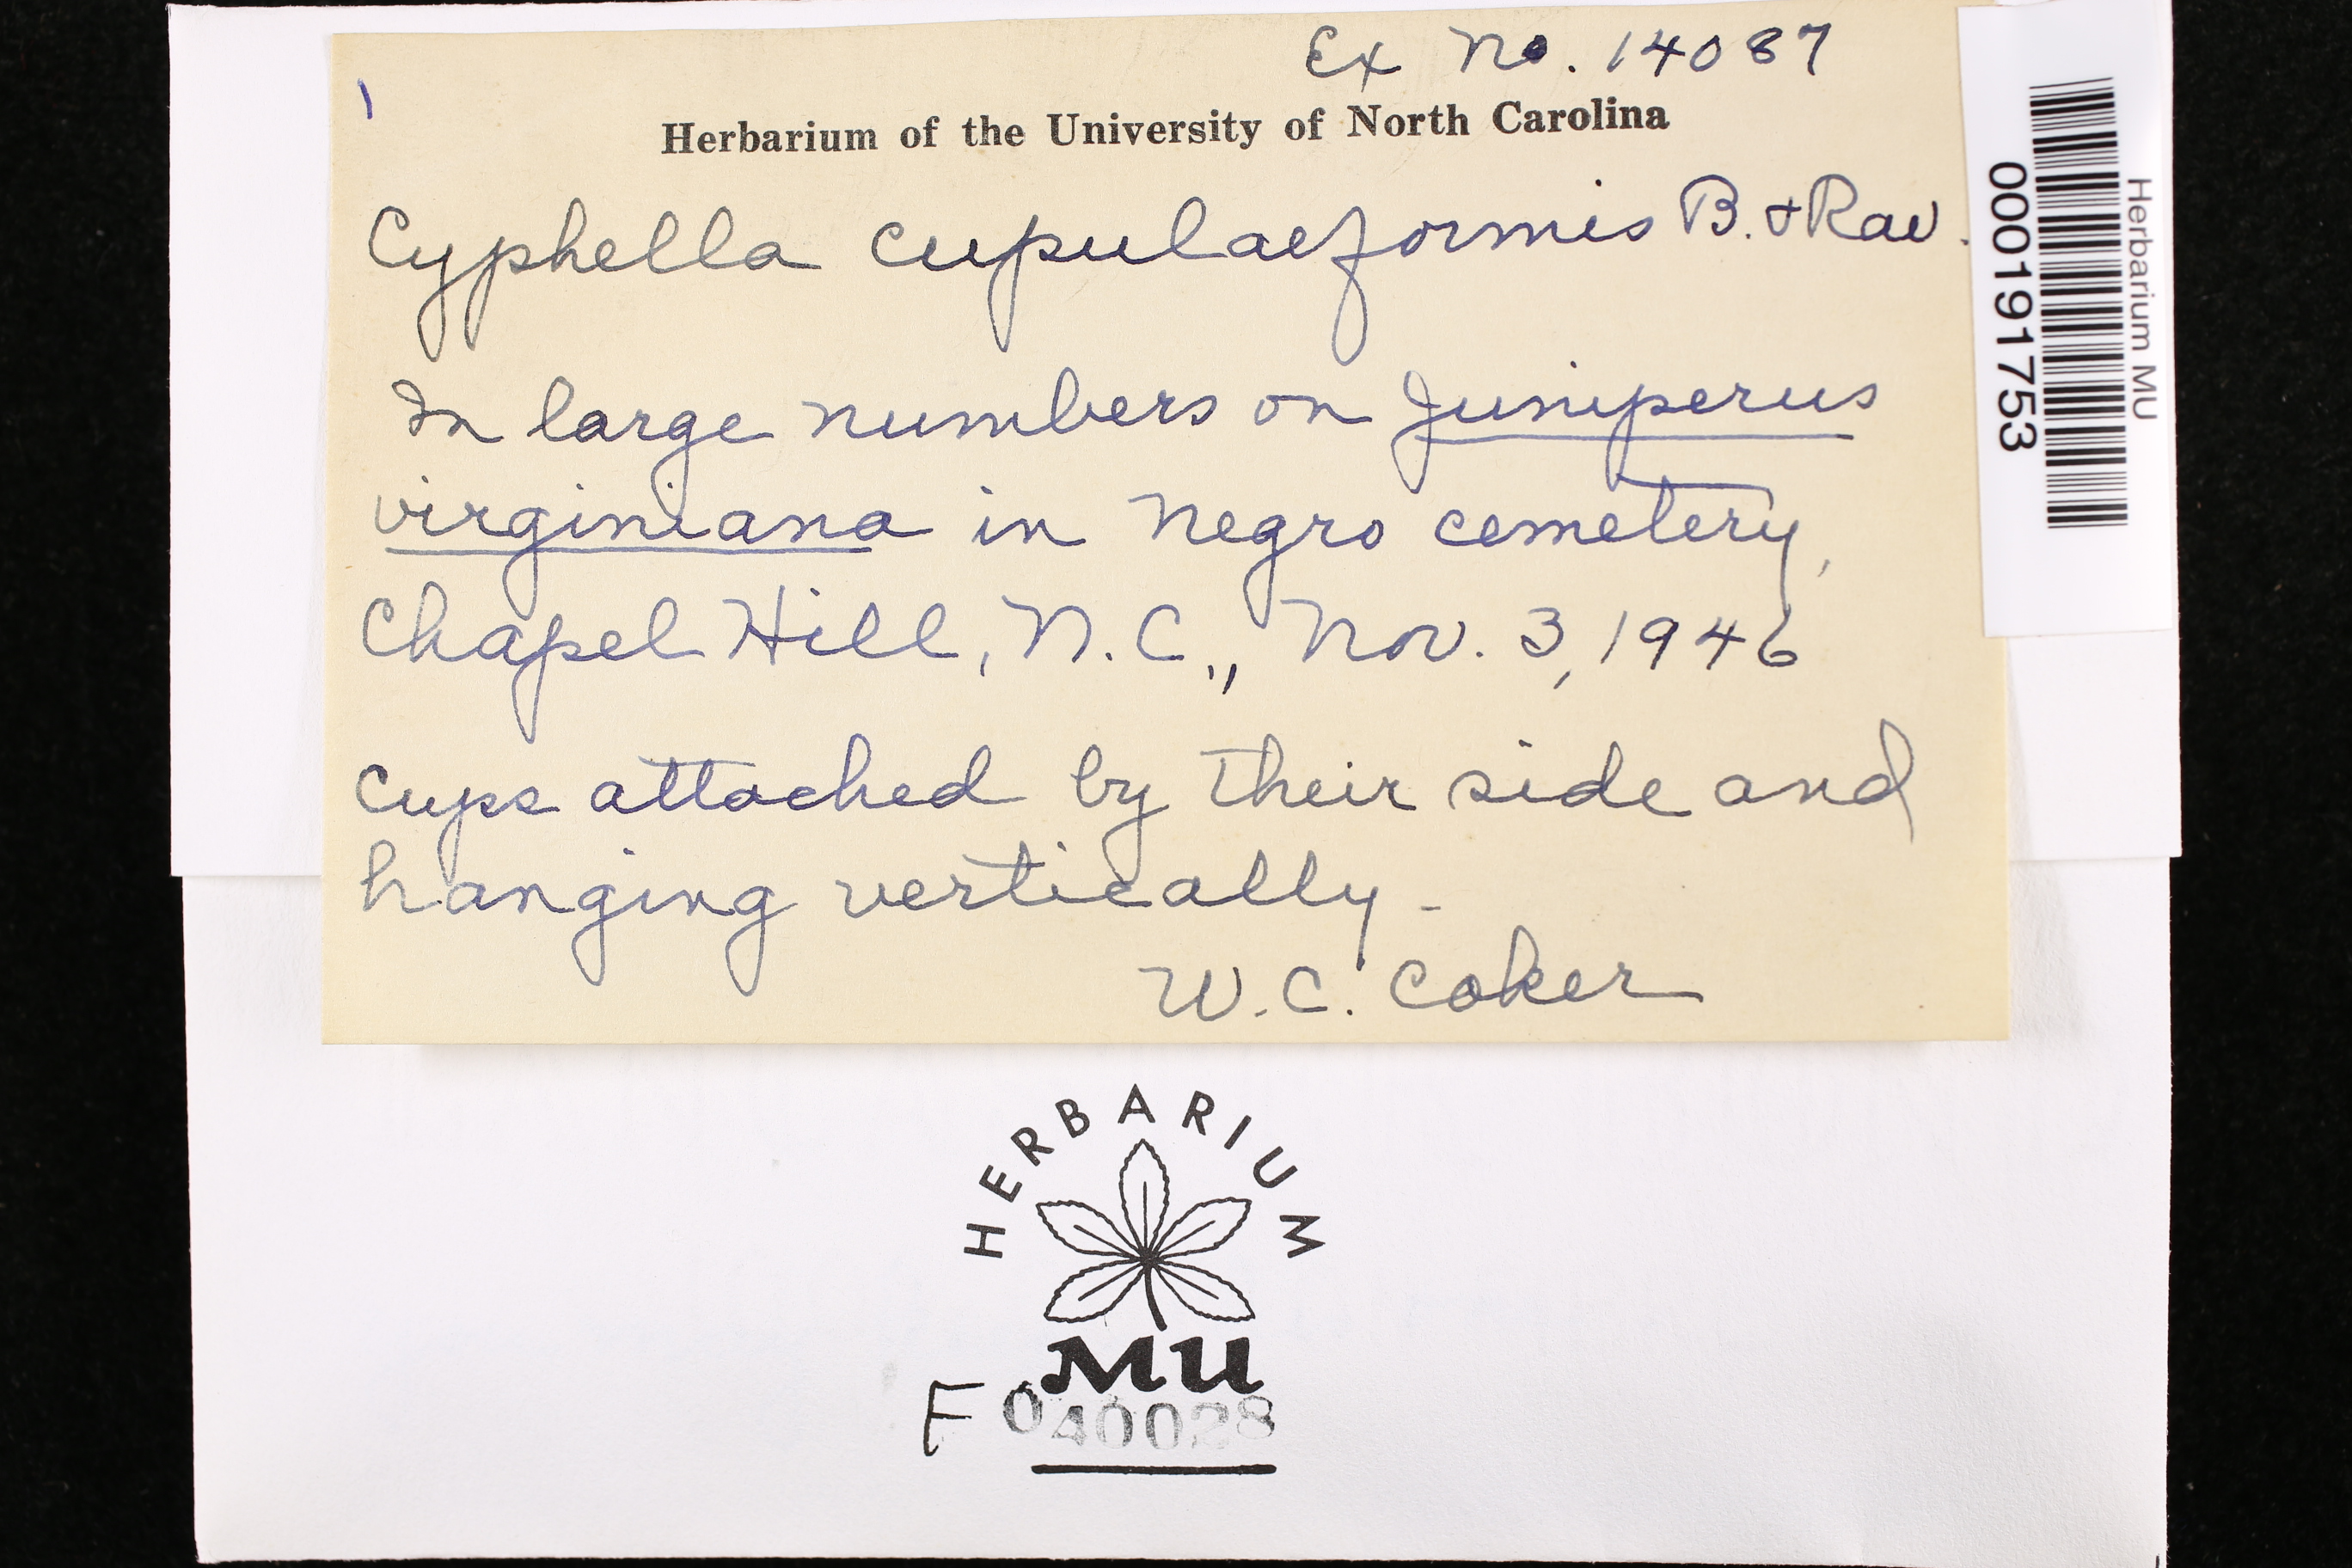 Ex No. 14087
Herbarium of the University of North Carolina
Cyphella cupulaeformis B. & Rav.
In large numbers on Juniperus
virginiana in Negro cemetery,
Chapel Hill, N.C., Nov. 3, 1946
Cups attached by their side and
hanging vertically -
W. C. Coker
Herbarium MU
000191753
HERBARIUM
MU
F 040028